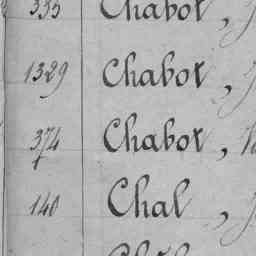 335 Chabot,
1329 Chabot,
374 Chabot,
140 Chal,